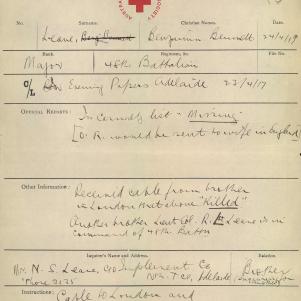 No. Surname. Christian Names. Date.
Leane, Benjamin Bennett 24/4/19
Rank. Regiment, &c.
Major 48th Battalion
O/L Evening Papers Adelaide 23/4/17
OFFICIAL REPORTS:
In casualty list - Missing -
[O.R. would be sent to wife in England]
Other Information:
Received cable from brother
in London that above "Killed"
Another brother Lieut Col. R. L. Leane is in
command of 48th Battn
Inquirer's Name and Address. Relationship.
Mr. N. S. Leane, C/o Implement Co
'Phone 2125 Nth Tce, Adelaide Brother
Instructions: Cable to London and